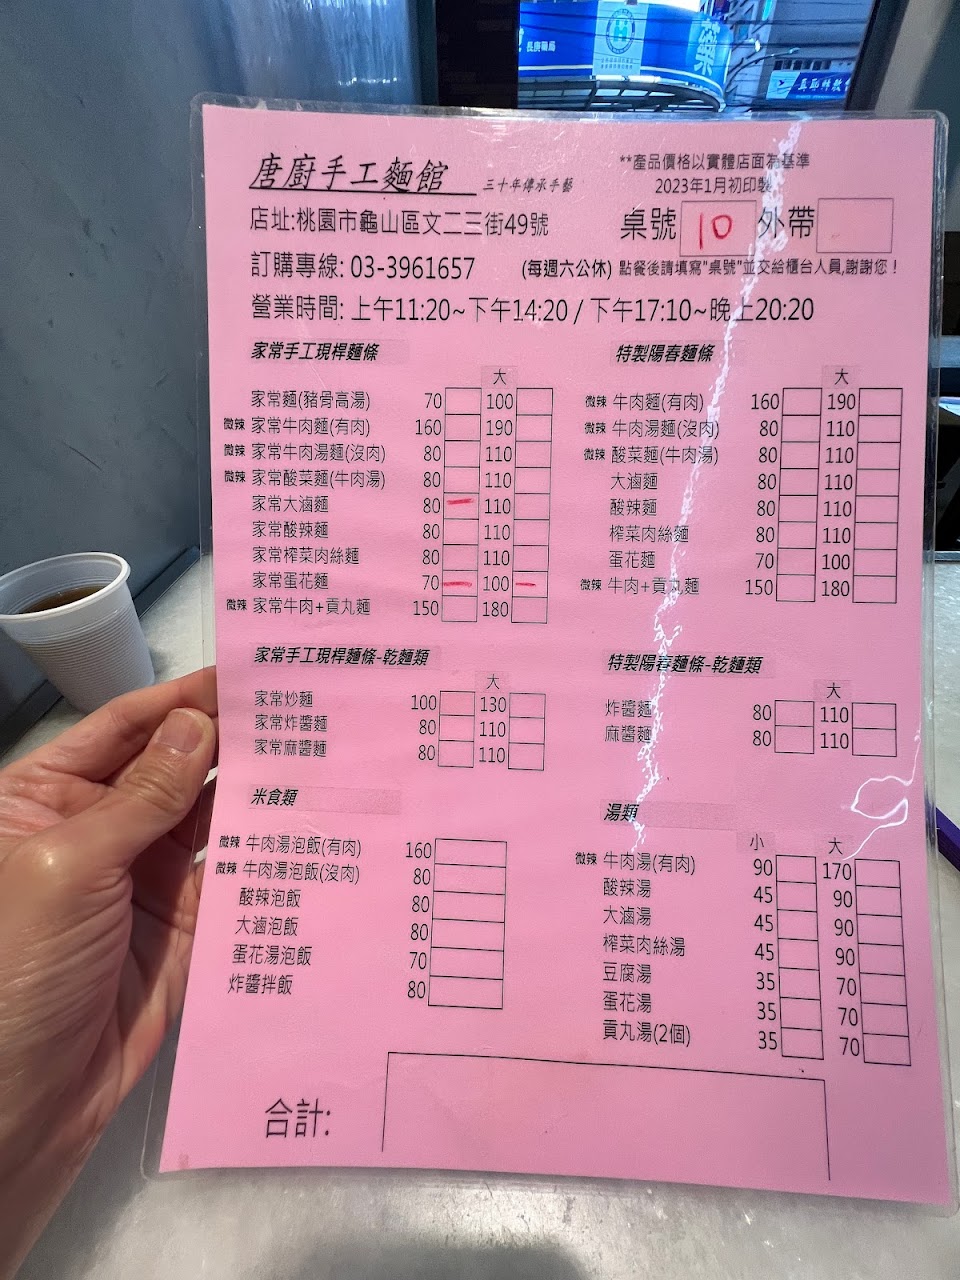 長庚藥局
藥
唐廚手工麵館 三十年傳承手藝
**產品價格以實體店面為基準
2023年1月初印製
店址:桃園市龜山區文二三街49號
桌號 10 外帶
訂購專線: 03-3961657 (每週六公休) 點餐後請填寫"桌號"並交給櫃台人員,謝謝您！
營業時間: 上午11:20~下午14:20 / 下午17:10~晚上20:20
家常手工現桿麵條
大
家常麵(豬骨高湯) 70 100
微辣 家常牛肉麵(有肉) 160 190
微辣 家常牛肉湯麵(沒肉) 80 110
微辣 家常酸菜麵(牛肉湯) 80 110
家常大滷麵 80 110
家常酸辣麵 80 110
家常榨菜肉絲麵 80 110
家常蛋花麵 70 100
微辣 家常牛肉+貢丸麵 150 180
特製陽春麵條
大
微辣 牛肉麵(有肉) 160 190
微辣 牛肉湯麵(沒肉) 80 110
微辣 酸菜麵(牛肉湯) 80 110
大滷麵 80 110
酸辣麵 80 110
榨菜肉絲麵 80 110
蛋花麵 70 100
微辣 牛肉+貢丸麵 150 180
家常手工現桿麵條-乾麵類
大
家常炒麵 100 130
家常炸醬麵 80 110
家常麻醬麵 80 110
特製陽春麵條-乾麵類
大
炸醬麵 80 110
麻醬麵 80 110
米食類
微辣 牛肉湯泡飯(有肉) 160
微辣 牛肉湯泡飯(沒肉) 80
酸辣泡飯 80
大滷泡飯 80
蛋花湯泡飯 70
炸醬拌飯 80
湯類
小 大
微辣 牛肉湯(有肉) 90 170
酸辣湯 45 90
大滷湯 45 90
榨菜肉絲湯 45 90
豆腐湯 35 70
蛋花湯 35 70
貢丸湯(2個) 35 70
合計: